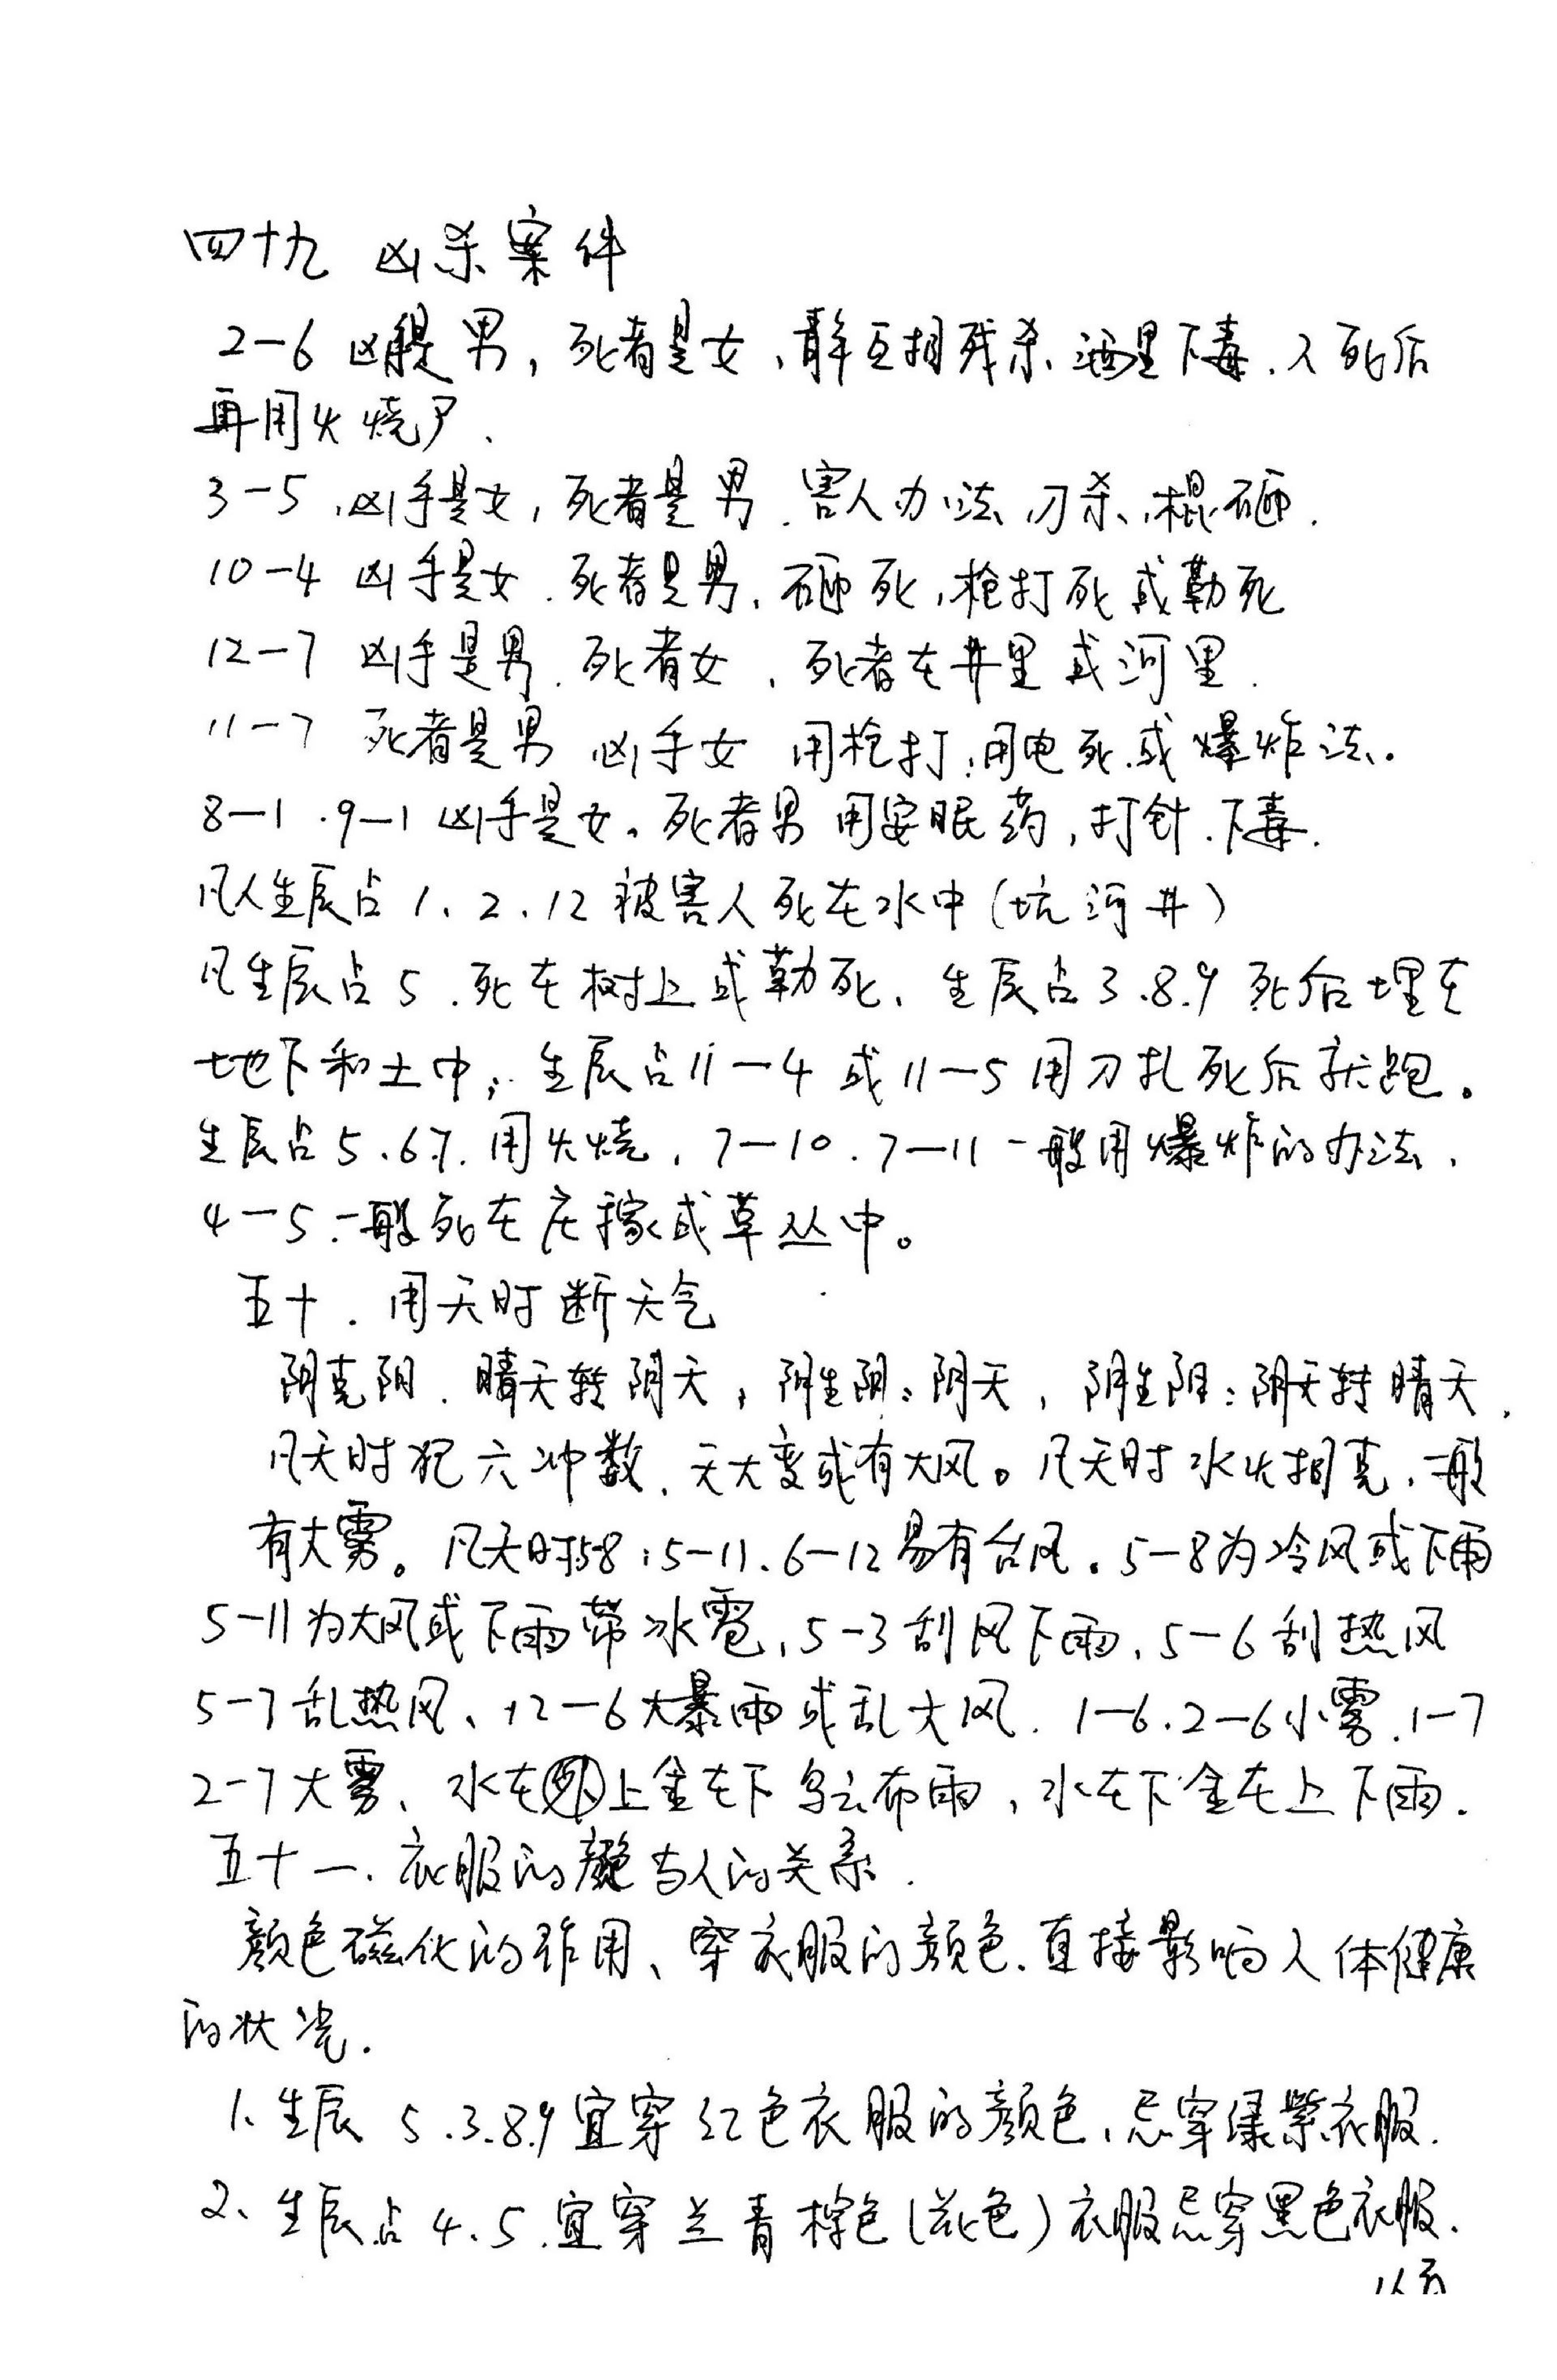 四十九 凶杀案件
2-6 凶是男，死者是女、互相残杀、酒里下毒、人死后
再用火烧尸、
3-5、凶手是女，死者是男、害人办法、刀杀、棍砸.
10-4 凶手是女、死者是男、砸死，枪打死或勒死
12-7 凶手是男、死者女、死者在井里或河里.
11-7 死者是男 凶手女 用枪打，用电死.或爆炸法.
8-1.9-1凶手是女。死者男 用安眠药，打针.下毒.
凡人生辰占1、2、12被害人死在水中（坑河井）
凡生辰占5.死在树上或勒死、生辰占3.8.9死后埋在
地下和土中；生辰占11-4或11-5用刀扎死后就跑。
生辰占5.6.7.用火烧，7-10.7-11一般用爆炸的办法、
4-5.一般死在庄稼或草丛中。
五十.用天时断天气
阴克阳.晴天转阴天，阴生阴：阴天，阴生阳：阴天转晴天.
凡天时犯六冲数、天大变或有大风。凡天时水火相克，一般
有大雾。凡天时5-8，5-11、6-12易有台风。5-8为冷风或下雨
5-11为大风或下雨带冰雹，5-3刮风下雨，5-6刮热风
5-7乱热风、12-6大暴雨或乱大风.1-6.2-6小雾.1-7
2-7大雾、水在上金在下乌云布雨，水在下金在上下雨.
五十一.衣服的颜色与人的关系.
颜色磁化的作用、穿衣服的颜色.直接影响人体健康
的状况.
1.生辰 5.3.8.9宜穿红色衣服的颜色，忌穿绿紫衣服.
2、生辰占4.5.宜穿兰青棕色(花色)衣服忌穿黑色衣服.